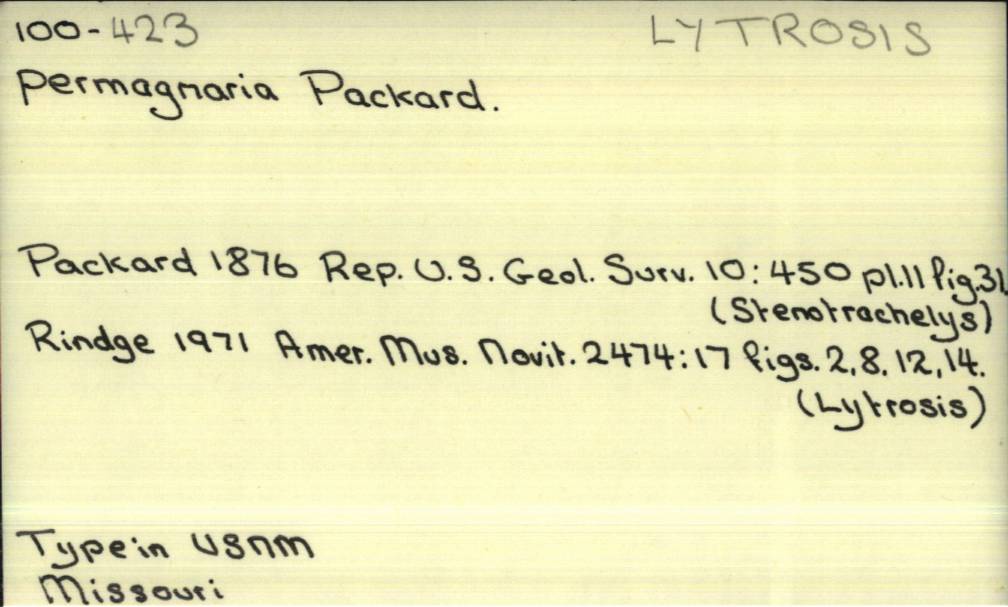 100-423 LYTROSIS
permagnaria Packard.
Packard 1876 Rep. U.S. Geol. Surv. 10: 450 pl.11 fig.31.
(Stenotrachelys)
Rindge 1971 Amer. Mus. Novit. 2474:17 figs. 2,8,12,14.
(Lytrosis)
Type in USNM
Missouri